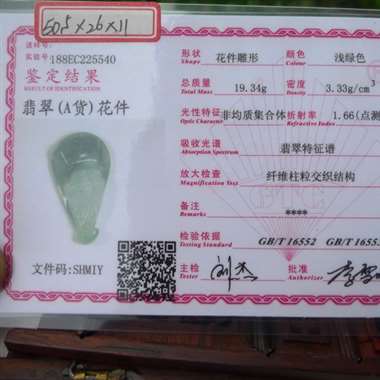 50.5×26×11
送样号:
188EC225540
鉴定结果
RESULT OF IDENTIFICATION
翡翠(A货)花件
文件码:SHMIY
形状
Shape
花件雕形
颜色
Colour
浅绿色
总质量
Total Mass
19.34g
密度
Density
3.33g/cm³
光性特征
Optic Character
非均质集合体
折射率
Refractive Index
1.66(点测
吸收光谱
Absorption Spectrum
翡翠特征谱
放大检查
Magnification Test
纤维柱粒交织结构
备注
Remarks
****
检验依据
Testing Standard
GB/T 16552
GB/T 1655
主检
Tester
批准
Authorizer